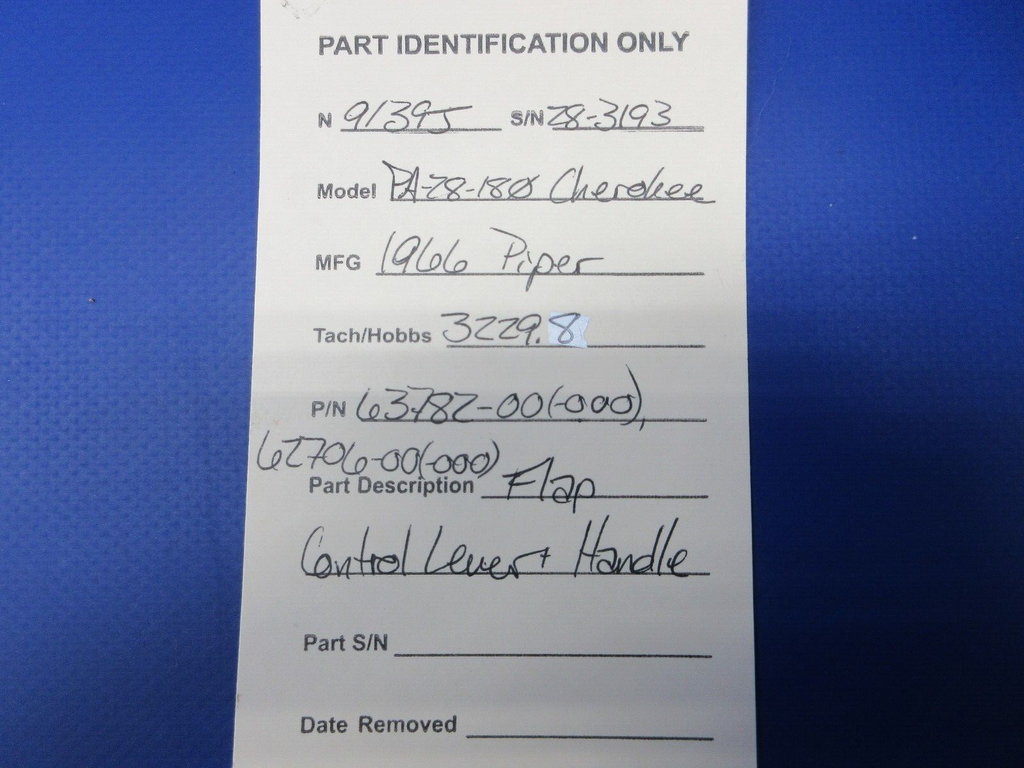 PART IDENTIFICATION ONLY
N 91395 S/N 28-3193
Model PA-28-180 Cherokee
MFG 1966 Piper
Tach/Hobbs 3229.8
P/N 63782-00(-000),
62706-00(-000)
Part Description Flap
Control Lever + Handle
Part S/N
Date Removed